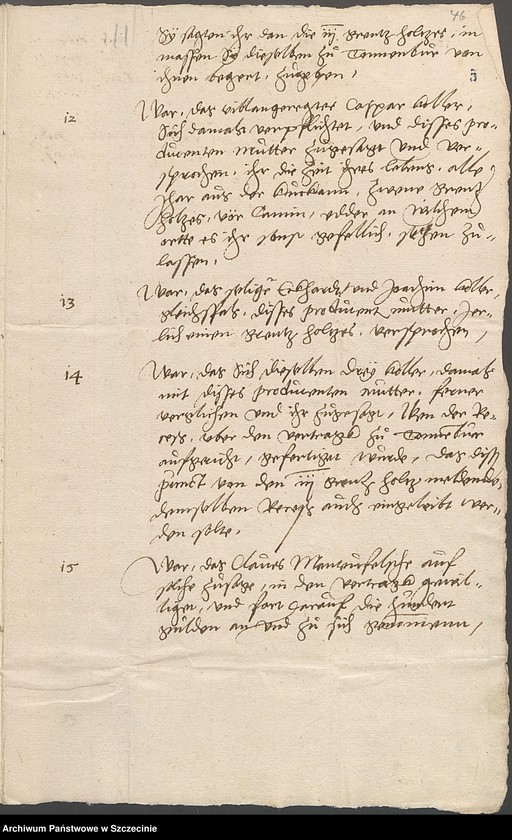 46
Sÿ sagten ihr dan die iij Grentz holtzes, in
massen Sÿ dieselben zu Dannenbur von
ihnen begert, zugeben,
5
12 War, das villangeregter Caspar Koller,
Sich damals verpflichtet, und disses pro-
ducenten mutter zugesagt und ver-
sprochen, ihr die Zeit ihres lebens, alle
Jhar aus der, zwene Grentz
holtzes, vor Camin, odder an wilchem
ortte es ihr sonst gefellich, setzen zu
lassen,
13 War, das selige Eckhardt und Joachim Koller,
gleichsfals, disses producent mutter, Jer-
lich einen Grentz holtzes, versprochen,
14 War, das Sich dieselben dreÿ Koller, damals
mit disses producenten mutter, ferner
verglichen und ihr zugesagt, Wen der Re-
cess, uber den vertragk zu Dannenbur
auffgericht, gefertigt wurde, das diss
punct von den iij Grentz holtz meldende
demselben Recess auch eingeleibt wer-
den solte,
15 War, das Claues Manteufelsche auf
solche zusage, in den vertragk gewil-
ligen, und fort darauf die hundert
gulden an und zu sich genomenn,
Archiwum Państwowe w Szczecinie